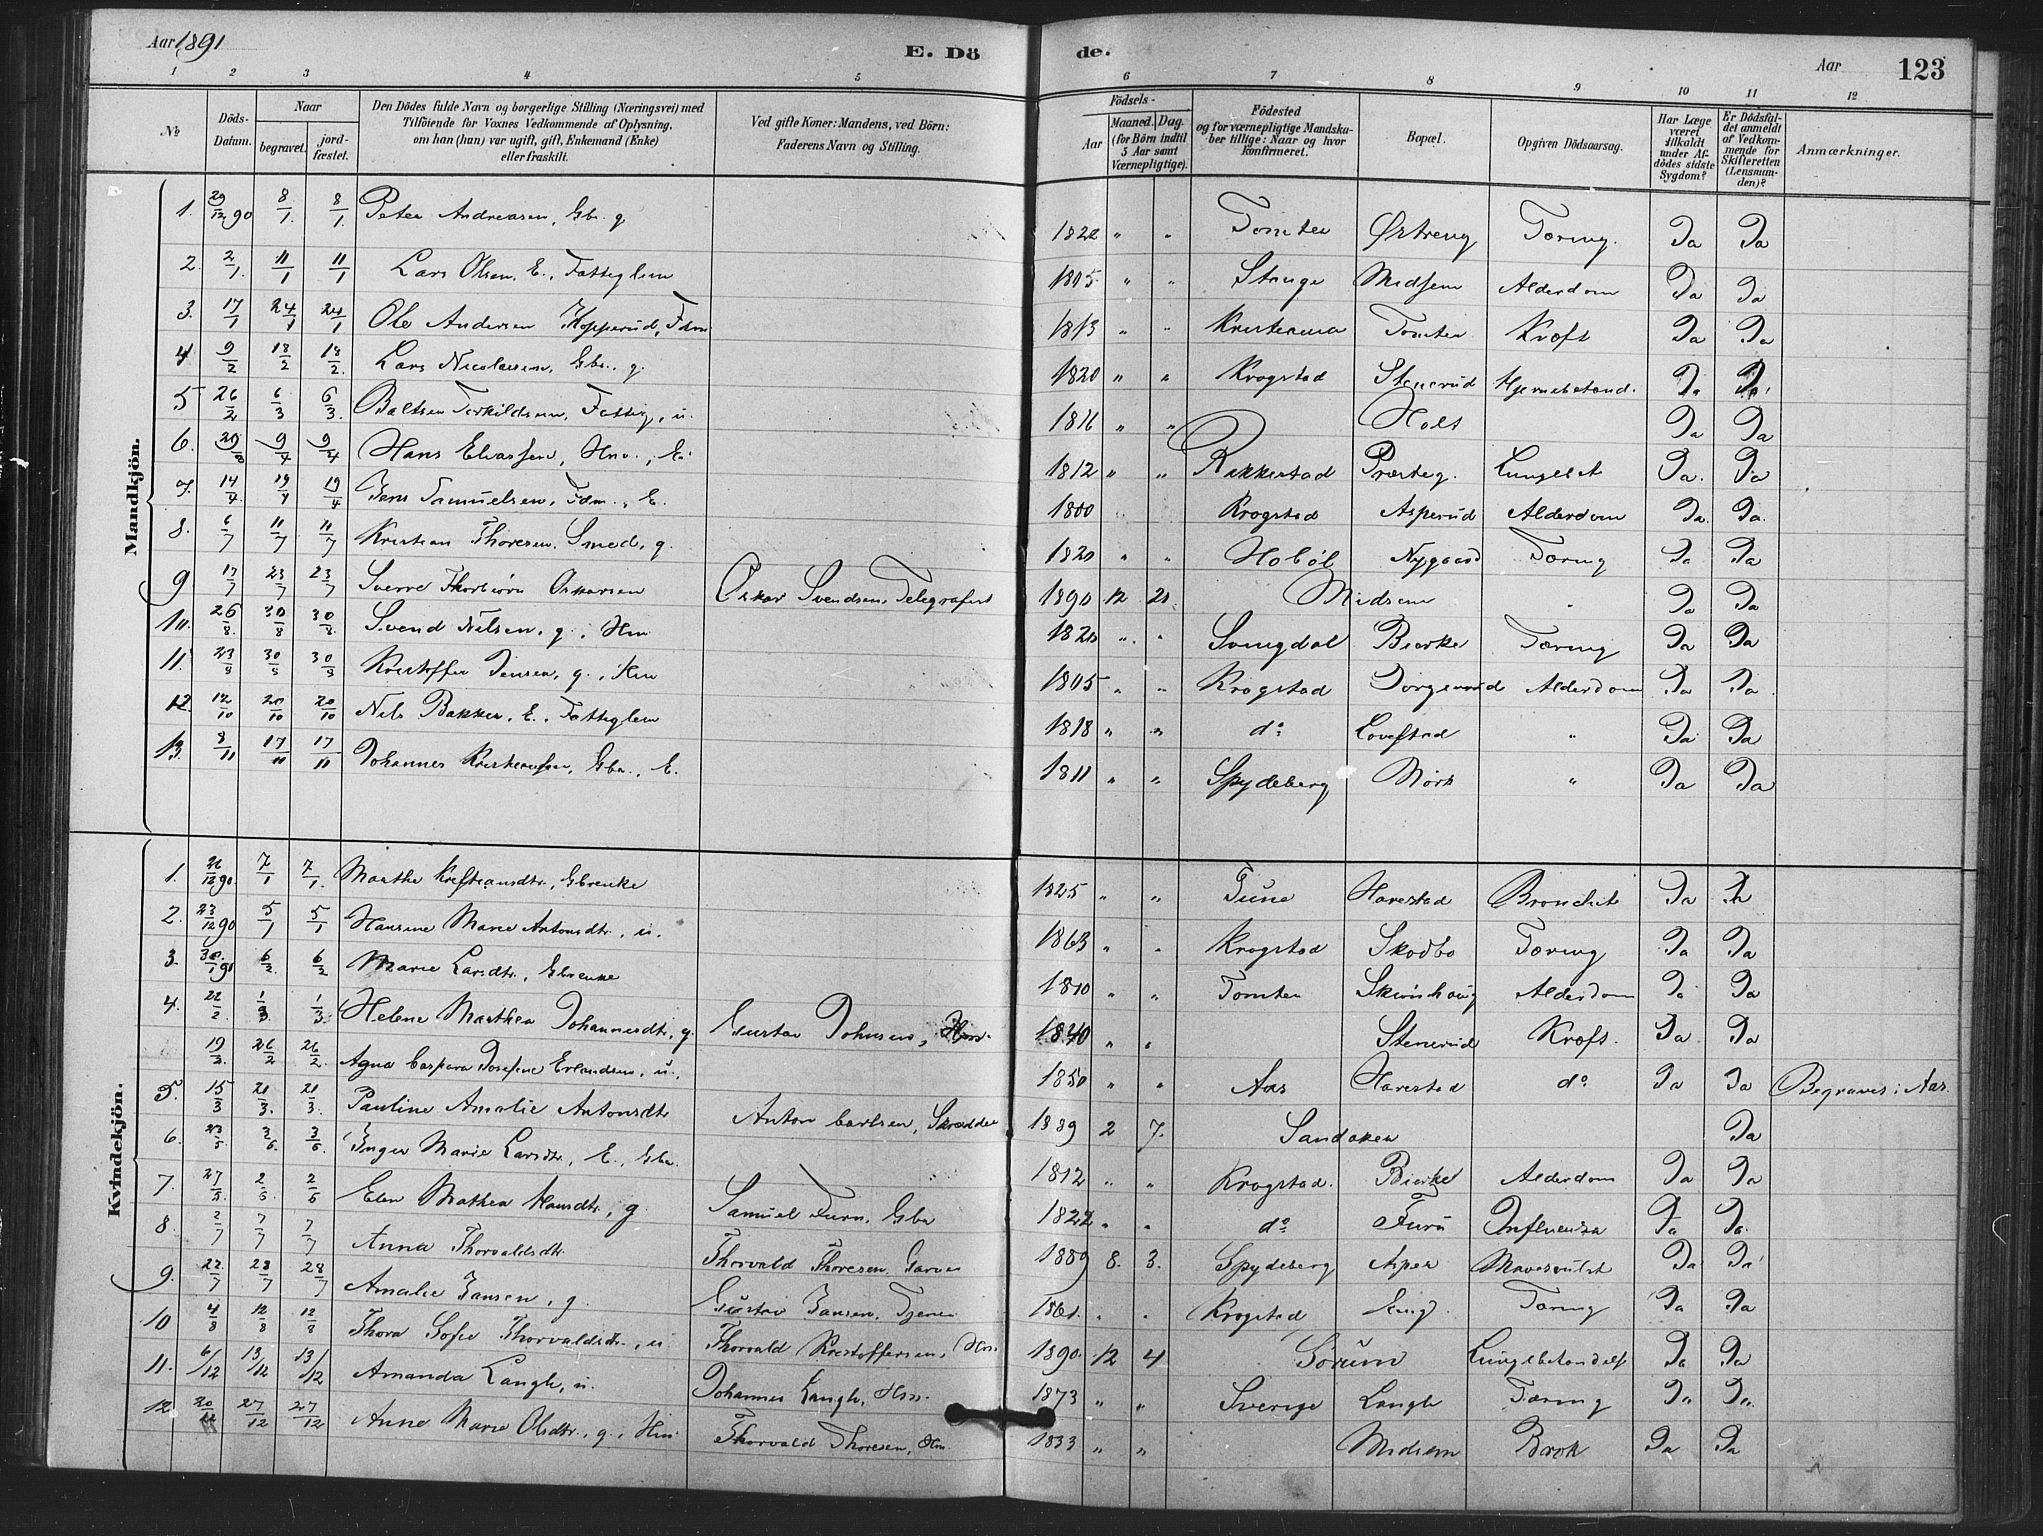 Aar 1891 E. Dö de. Aar 123
1 2 3 4 5 6 7 8 9 10 11 12
№ Döds-Datum. Naar begravet. jordfæstet. Den Dödes fulde Navn og borgerlige Stilling (Næringsvei) med Tilföiende for Voxnes Vedkommende af Oplysning, om han (hun) var ugift, gift, Enkemand (Enke) eller fraskilt. Ved gifte Koner: Mandens, ved Börn: Faderens Navn og Stilling. Födsels- Aar Maaned. Dag. (for Börn indtil 5 Aar samt Værnepligtige). Födested og for værnepligtige Mandskaber tillige: Naar og hvor konfirmeret. Bopæl. Opgiven Dödsaarsag. Har Læge været tilkaldt under Afdödes sidste Sygdom? Er Dödsfaldet anmeldt af Vedkommende for Skifteretten (Lensmanden)? Anmærkninger.
Mandkjön.
1. 29/12 90 8/1. 8/1. Peter Andreasen, Gbr. g. 1822 " " Tomter Østreng Tæring. Ja Ja
2. 2/1. 11/1 11/1 Lars Olsen, E., Fattiglem 1805 " " Stange Midsem Alderdom Ja Ja
3. 17/1 24/1 24/1 Ole Andersen Kopperud, Fdm 1813 " " Kristiania Tomter Kræft Ja Ja
4 9/2 18/2 18/2. Lars Nicolaisen, Gbr., g. 1820 " " Krogstad Stenerud Hjernebetænd. Ja Ja
5 26/2 6/3 6/3. Baltser Torkildsen, Fattig, u. 1816 " " Holt Ja Ja
6. 9/4 9/4 Hans Eliassen, Hm., E. 1812 " " Rakkestad Præsteg. Lungebet Ja. Ja
7. 14/4. 19/4 19/4 Jens Samuelsen, Fdm., E. 1800 Krogstad Asperud Alderdom Ja. Ja.
8. 6/7 11/7 11/7 Kristian Thoresen, Smed, g. 1820 " " Hobøl Nygaard Tæring Ja Ja
9 17/7 23/7 23/7 Sverre Thorbiørn Oskarsen Oskar Svendsen, Telegrafist 1890 12 21 Midsem " Ja Ja
10. 26/8. 30/8 30/8. Svend Nilsen, g., Hm 1820 " " Bierke Tæring Ja Ja
11. 23/8 30/8 30/8 Kristoffer Jensen, g., Hm 1805 " " Krogstad Alderdom Ja Ja
12. 12/10 20/10 20/10 Nils Bakken, E., Fattiglem 1818 " " do Lovestad " Ja Ja
13. 8/11 17/11 17/11 Johannes Kristensen, Gbr., E. 1811 " " Spydeberg Mørk " Ja Ja
Kvindekjön.
1. 26/12 90. 7/1 7/1. Marthe Kristiansdtr., Gbrenke 1825 " " Tune Harestad Bronchit Ja Ja
2. 23/12 90 5/1 5/1 Hansine Marie Antonsdtr., u. 1863 " " Krogstad Skodbo Tæring Ja Ja
3. 30/1 90 6/2. 6/2 Marie Larsdtr., Gbrenke 1810 " " Tomter Skiønhaug Alderdom Ja Ja
4. 22/2. 1/3 1/3 Helene Marthea Johannesdtr., g. Gustav Johnsen, Hm. 1840 " " Stenerud Kræft. Ja Ja
19/2. 26/2 26/2. Agna Caspara Josefine Erlandsen, u. 1850 " " Aas Harestad do Ja Ja Begraves i Aas.
5. 15/3 21/3. 21/3. Pauline Amalie Antonsdtr Anton Carlsen, Skrædder 1889 2 7. Sandaker Ja
6. 23/5 Inger Marie Larsdtr., E., Gbr. 1812 " " Krogstad. Bierke Alderdom Ja Ja
7. 27/5 2/6 2/6 Elen Mathea Hansdtr., g. Samuel Furu, Gbr 1822 " " do Furu Influenza Ja Ja
8. 2/7 7/7 7/7 Anna Thorvaldsdtr. Thorvald Thoresen, Garver 1889 8. 3. Spydeberg Asper Ja Ja
9. 22/7 28/7 28/7 Amalie Jansen, g. Gustav Jansen, Tjener 1861. " " Krogstad Eng. Tæring Ja Ja
10 4/8 12/8 12/8 Thora Sofie Thorvaldsdtr., u Thorvald Kristoffersen, Hm 1890. 12 4 Sørum Lungebetændelse Ja Ja
11. 6/12 13/12 13/12 Amanda Langli, u. Johannes Langli, Hm. 1873 " " Sverige Langli Tæring Ja Ja.
12 20/12 27/12 27/12 Anne Marie Olsdtr., g., Hm Thorvald Thoresen, Hm. 1833 " " Midsem Brok Ja Ja